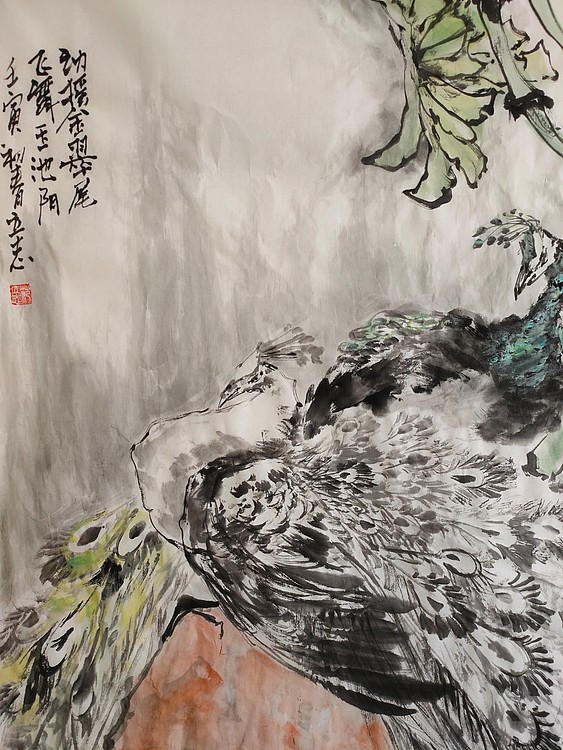 动摇金翠尾
飞舞玉池阴
壬寅初春立志